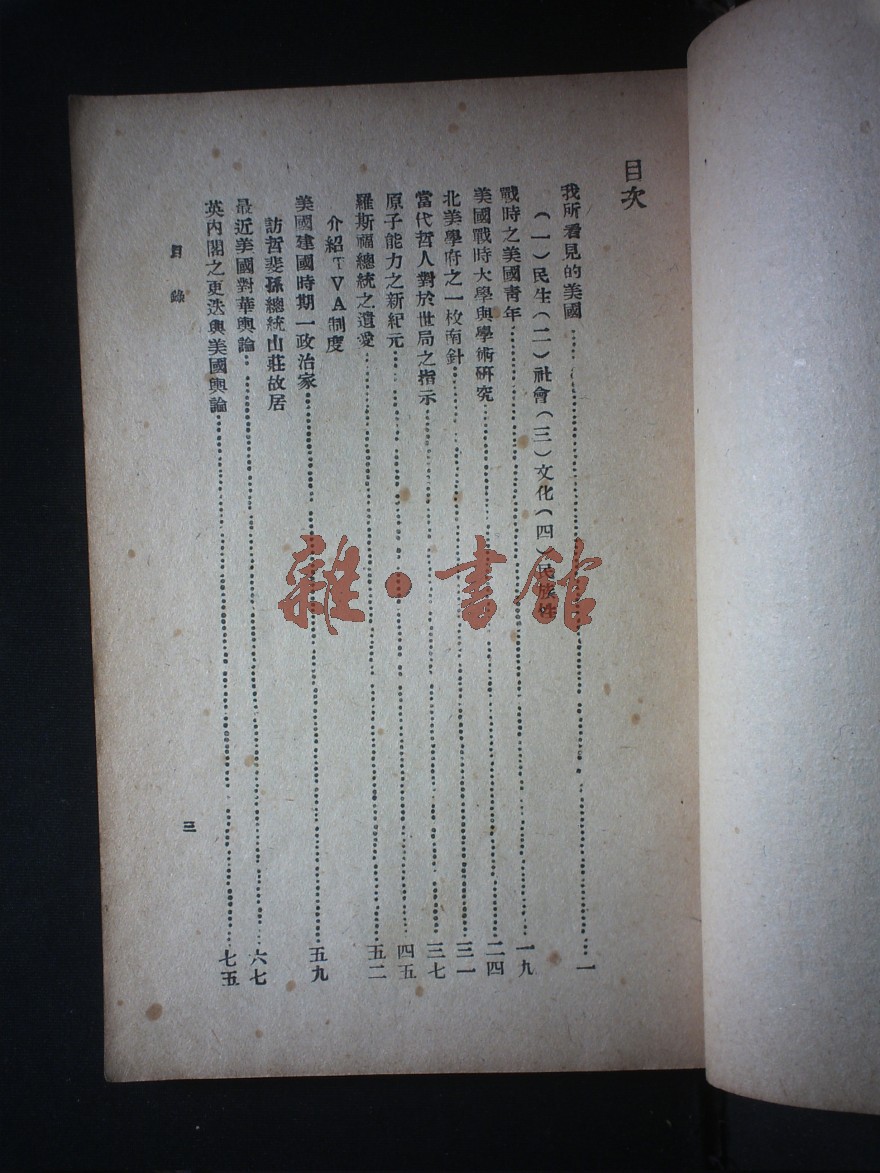 目次
我所看見的美國……一
（一）民生（二）社會（三）文化（四）民族性
戰時之美國靑年……一九
美國戰時大學與學術硏究……二四
北美學府之一枚南針……三一
當代哲人對於世局之指示……三七
原子能力之新紀元……四五
羅斯福總統之遺愛……五二
介紹TVA制度
美國建國時期一政治家……五九
訪哲斐孫總統山莊故居
最近美國對華輿論……六七
英內閣之更迭與美國輿論……七五
目錄
三
雜·書館